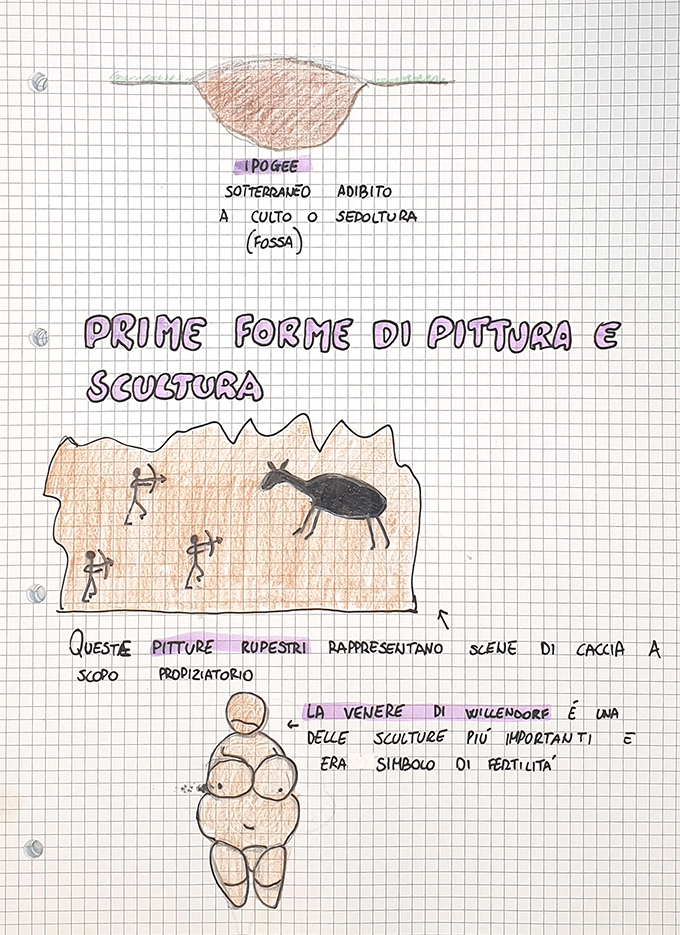 IPOGEE
SOTTERRANEO ADIBITO
A CULTO O SEPOLTURA
(FOSSA)
PRIME FORME DI PITTURA E
SCULTURA
QUESTE PITTURE RUPESTRI RAPPRESENTANO SCENE DI CACCIA A
SCOPO PROPIZIATORIO
LA VENERE DI WILLENDORF É UNA
DELLE SCULTURE PIÚ IMPORTANTI E
ERA SIMBOLO DI FERTILITÁ